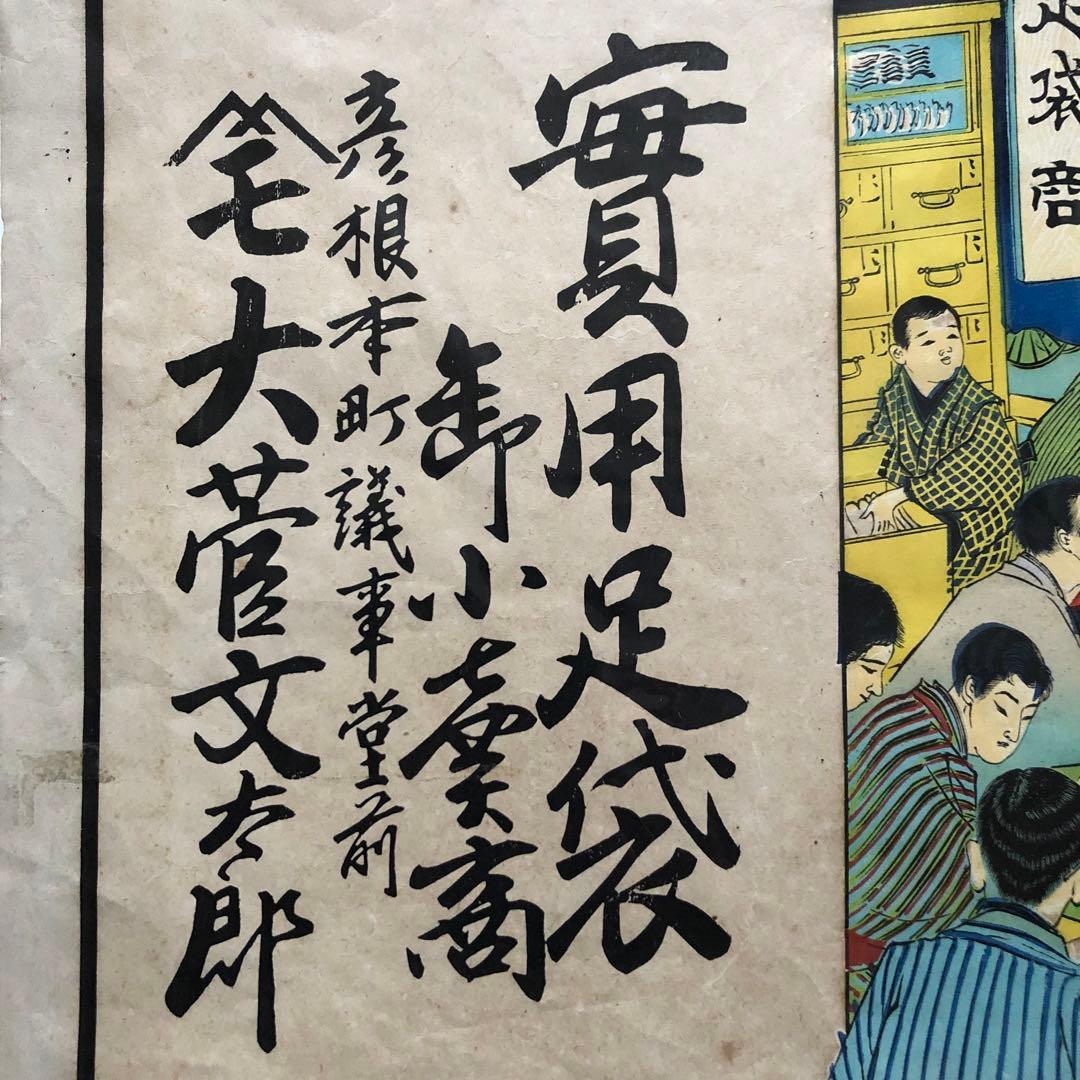 足袋商
實用足袋
卸小賣商
彦根本町議事堂前
七
大菅文太郎